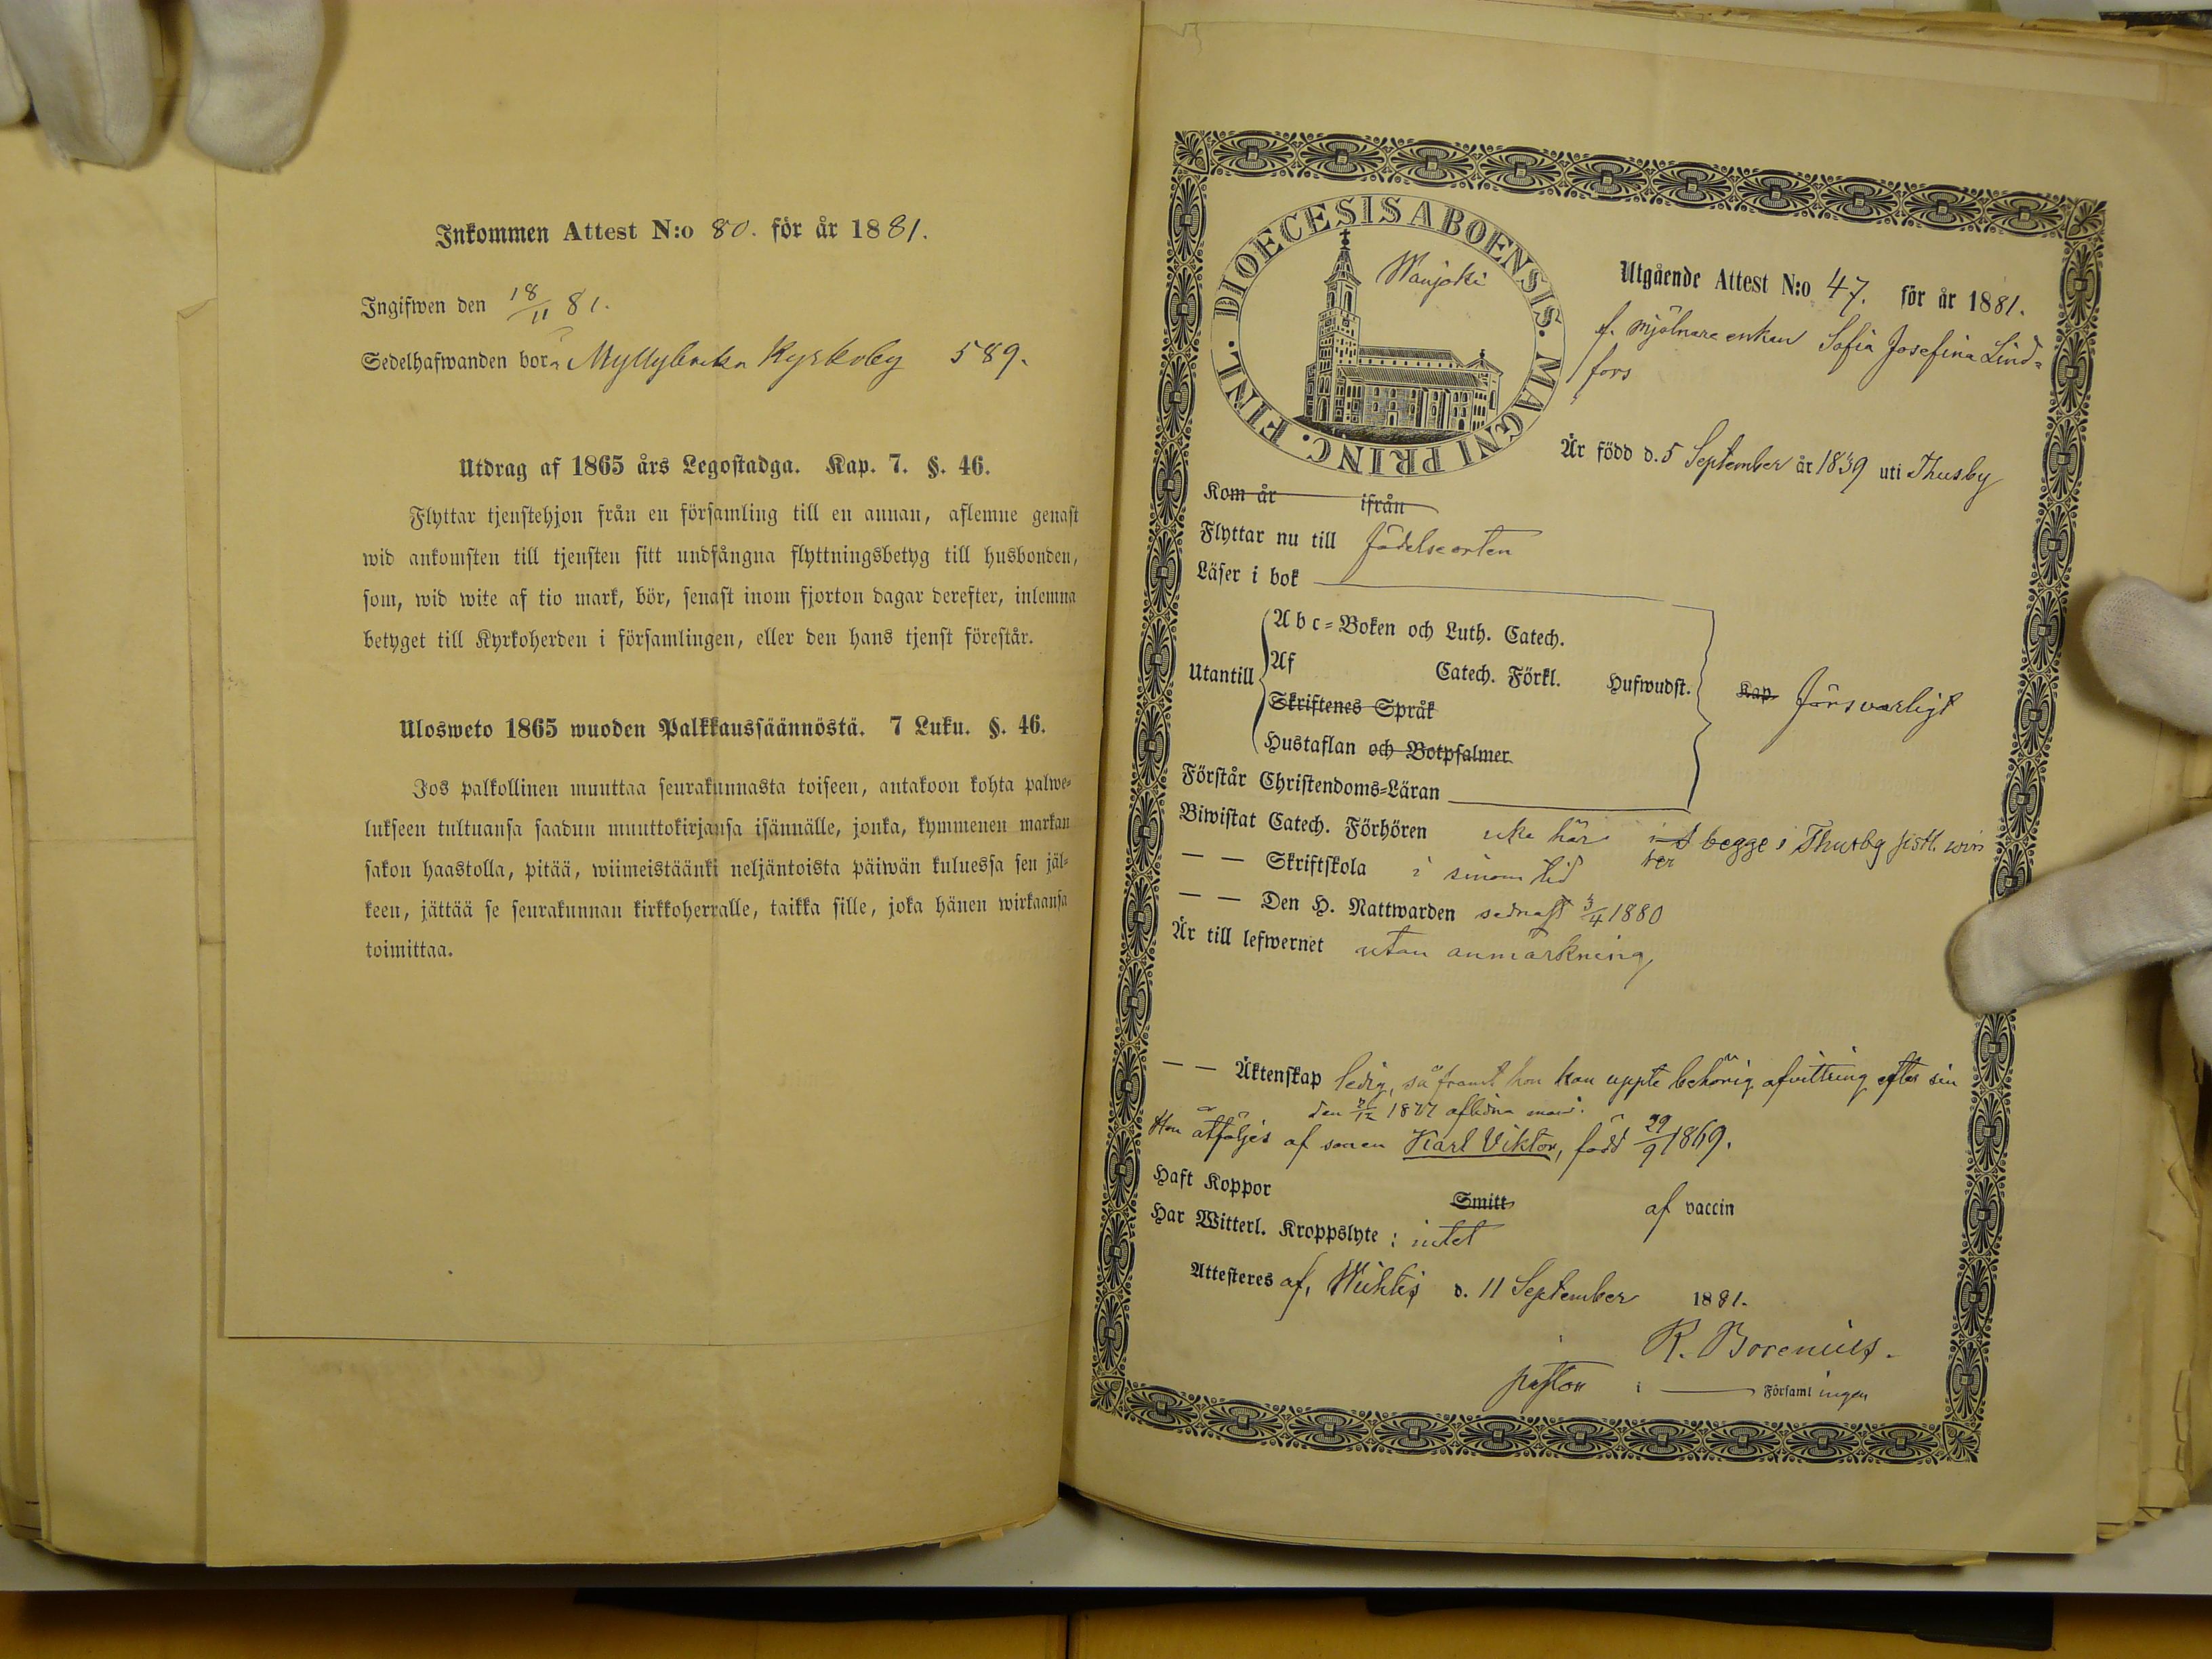 Inkommen Attest N:o 80. för år 1881.
Ingifwen den 18/11 81.
Sedelhafwanden bor Myllybacka Kyrkoby 589.
Utdrag af 1865 års Legostadga. Kap. 7. §. 46.
Flyttar tjenstehjon från en församling till en annan, aflemne genast
wid ankomsten till tjensten sitt undfångna flyttningsbetyg till husbonden,
som, wid wite af tio mark, bör, senast inom fjorton dagar derefter, inlemna
betyget till Kyrkoherden i församlingen, eller den hans tjenst förestår.
Ulosweto 1865 wuoden Palkkaussäännöstä. 7 Luku. §. 46.
Jos palkollinen muuttaa seurakunnasta toiseen, antakoon kohta palwe-
lukseen tultuansa saadun muuttokirjansa isännälle, jonka, kymmenen markan
sakon haastolla, pitää, wiimeistäänki neljäntoista päiwän kuluessa sen jäl-
keen, jättää se seurakunnan kirkkoherralle, taikka sille, joka hänen wirkaansa
toimittaa.
DIOECESIS ABOENSIS. MAGNI PRINC. FINL.
Wanjoki
Utgående Attest N:o 47. för år 1881.
f. mjölnare enkan Sofia Josefina Lind-
fors
Är född d. 5 September år 1839 uti Thusby
Kom år ifrån
Flyttar nu till födelseorten
Läser i bok
Abc-Boken och Luth. Catech.
Utantill Af Catech. Förkl. Hufwudst. Kap. försvarligt
Skriftenes Språk
Hustaflan och Botpsalmer
Förstår Christendoms-Läran
Biwistat Catech. Förhören icke här begge i Thusby sistl. vin
ter
— — Skriftskola i sinom tid
— — Den H. Nattwarden sednast 3/4 1880
Är till lefwernet utan anmärkning
— — Äktenskap ledig, såframt hon kan uppte behörig afvittring efter sin
den 2/12 1877 aflidna man.
Hon åtföljes af sonen Karl Viktor, född 29/9 1869.
Haft Koppor Smitt af vaccin
Har Witterl. Kroppslyte: intet
Attesteres af, Wichtis d. 11 September 1881.
R. Borenius.
pastor i — Församlingen